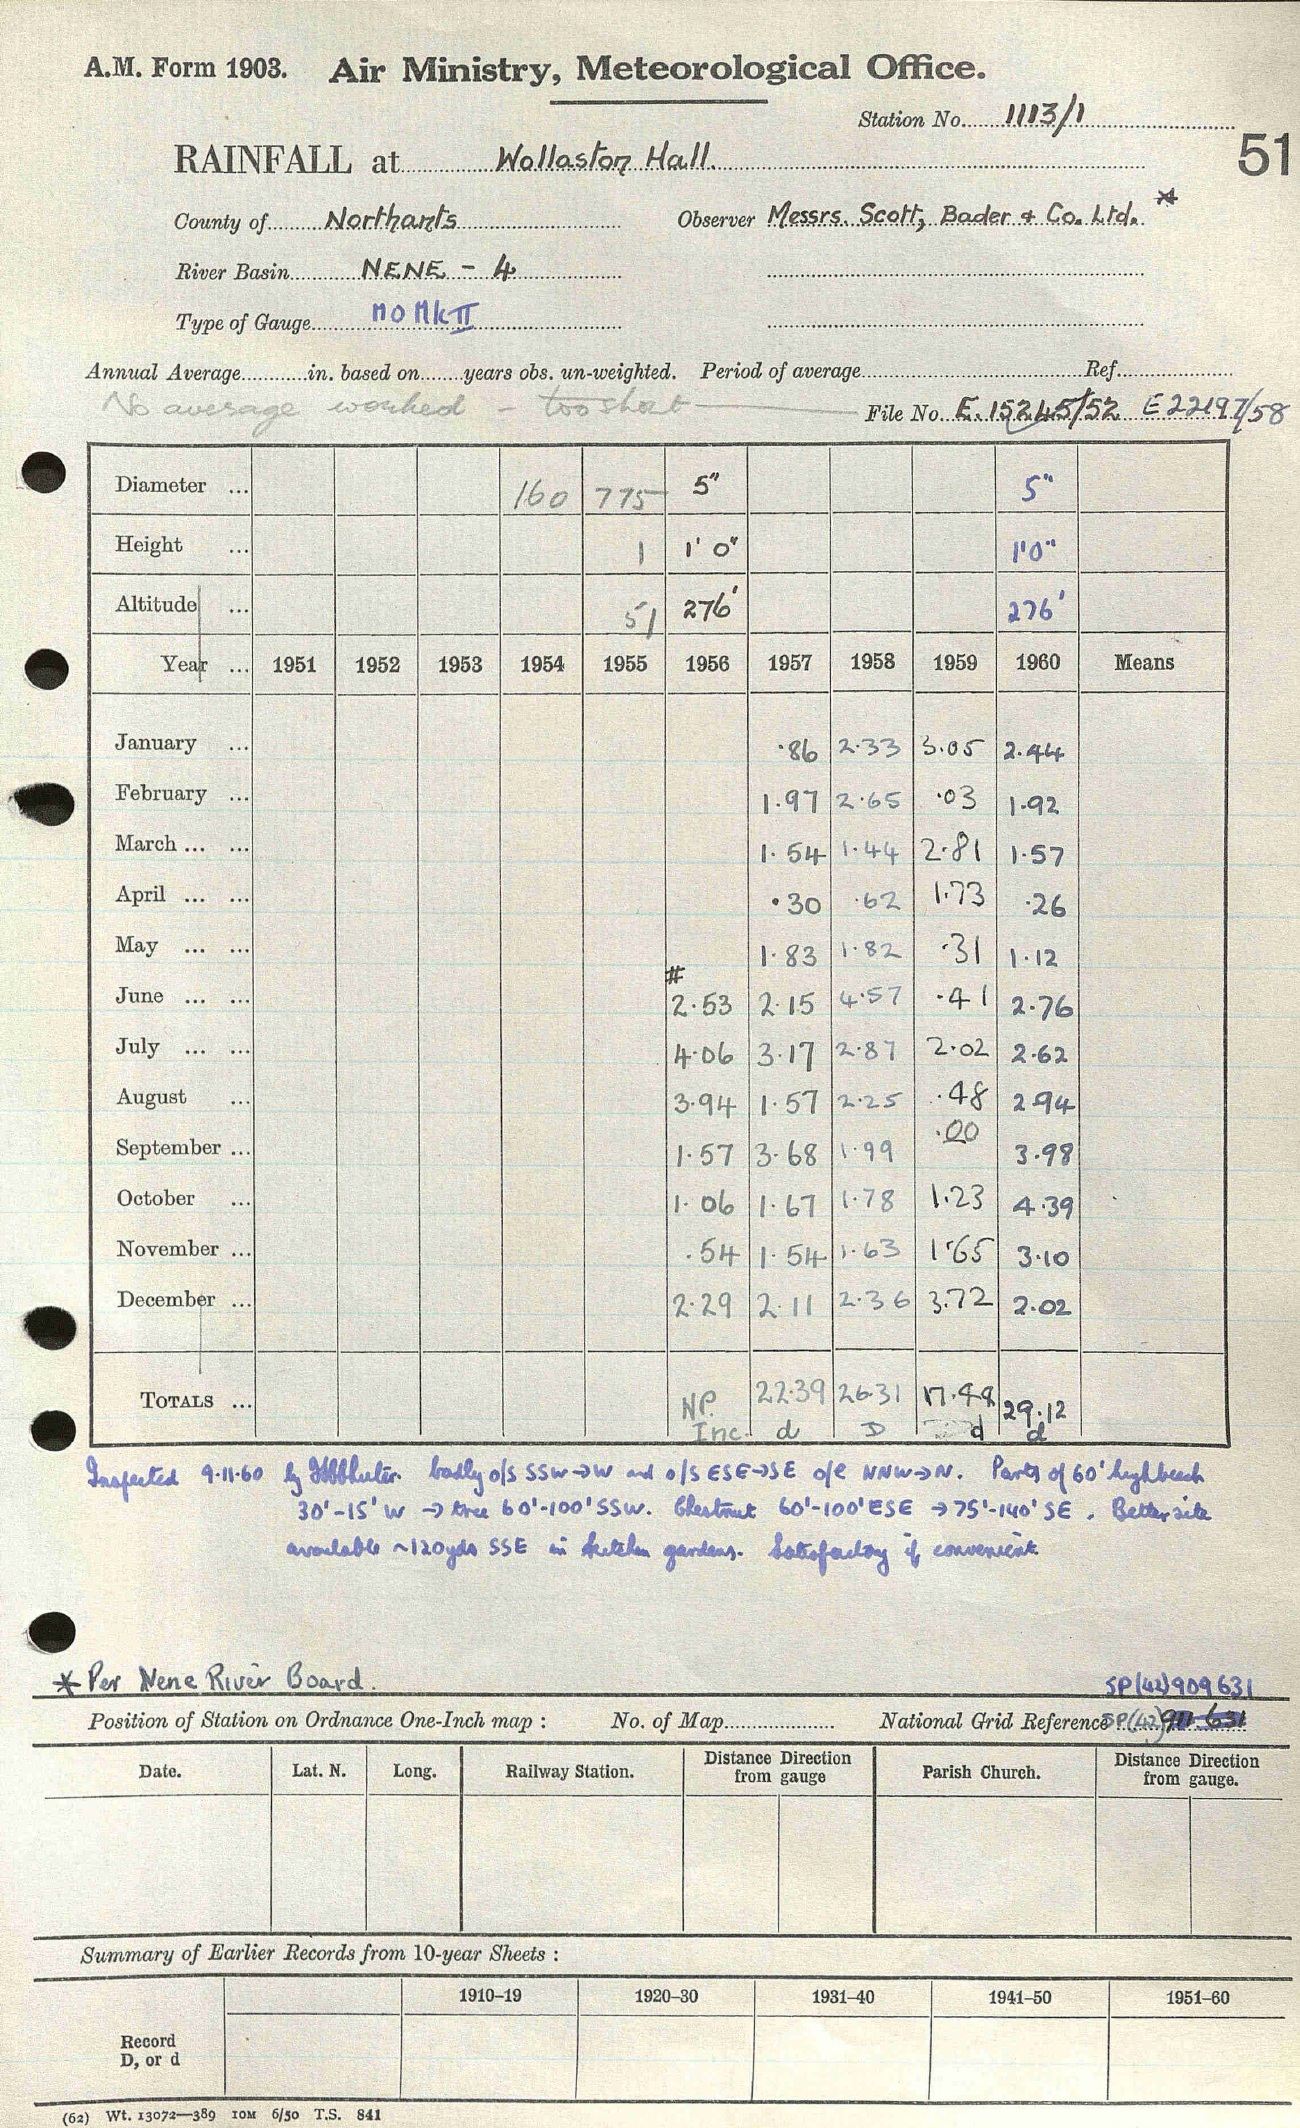 A.M. Form 1903. Air Ministry, Meteorological Office.
Station No. 1113/1
51
RAINFALL at Wollaston Hall.
County of Northants Observer Messrs. Scott, Bader & Co. Ltd. *
River Basin NENE - 4
Type of Gauge MO Mk II
Annual Average in. based on years obs. un-weighted. Period of average Ref.
No average worked - too short File No. E. 15245/52 E 22197/58
Diameter ... 160 775 5" 5"
Height ... 1 1' 0" 1'0"
Altitude ... 51 276' 276'
Year ... 1951 1952 1953 1954 1955 1956 1957 1958 1959 1960 Means
January ... ·86 2·33 3·05 2·44
February ... 1·97 2·65 ·03 1·92
March ... ... 1·54 1·44 2·81 1·57
April ... ... ·30 ·62 1·73 ·26
May ... ... 1·83 1·82 ·31 1·12
#
June ... ... 2·53 2·15 4·57 ·41 2·76
July ... ... 4·06 3·17 2·87 2·02 2·62
August ... 3·94 1·57 2·25 ·48 2·94
September ... 1·57 3·68 1·99 ·00 3·98
October ... 1·06 1·67 1·78 1·23 4·39
November ... ·54 1·54 1·63 1·65 3·10
December ... 2·29 2·11 2·36 3·72 2·02
TOTALS ... NP. 22·39 26·31 17·44 29·12
Inc. d D d d
Inspected 9·11·60 by badly o/s SSW→W and o/s ESE→SE o/e NNW→N. Parts of 60' high beech
30'-15' W → tree 60'-100' SSW. Chestnut 60'-100' ESE → 75'-140' SE. Better site
available ~120yds SSE in kitchen gardens. Satisfactory if convenient
* Per Nene River Board.
SP(42)909631
Position of Station on Ordnance One-Inch map : No. of Map National Grid Reference SP(42) 911.631
Date. Lat. N. Long. Railway Station. Distance Direction from gauge Parish Church. Distance Direction from gauge.
Summary of Earlier Records from 10-year Sheets :
1910–19 1920–30 1931–40 1941–50 1951–60
Record
D, or d
(62) Wt. 13072—389 10M 6/50 T.S. 841